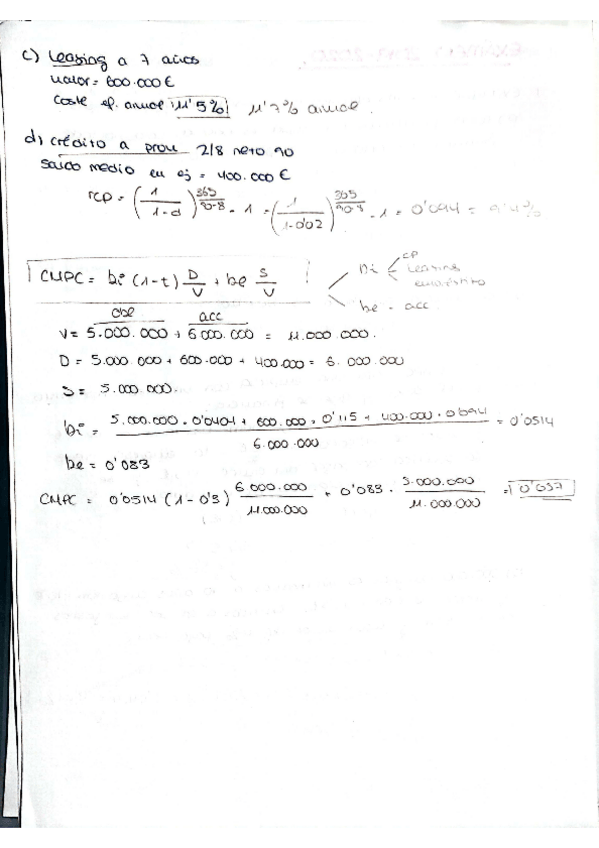 c) Leasing a 7 años
valor = 600.000 €
Coste ef. anual 11'5% 11'7% anual.
d) crédito a prov 2/8 neto 90
Saldo medio en ej = 400.000 €
rcp = (1/1-d)^365/90-8 - 1 = (1/1-0'02)^365/90-8 - 1 = 0'094 = 9'4%
CMPC = bi (1-t) D/V + be S/V
Di CP Leasing
be - acc
obl acc
V = 5.000.000 + 6.000.000 = 11.000.000.
D = 5.000.000 + 600.000 + 400.000 = 6.000.000
S = 5.000.000.
bi = 5.000.000 · 0'0404 + 600.000 · 0'115 + 400.000 · 0'094 / 6.000.000 = 0'0514
be = 0'083
CMPC = 0'0514 (1-0'3) 6.000.000/11.000.000 + 0'083 · 5.000.000/11.000.000 = 0'057